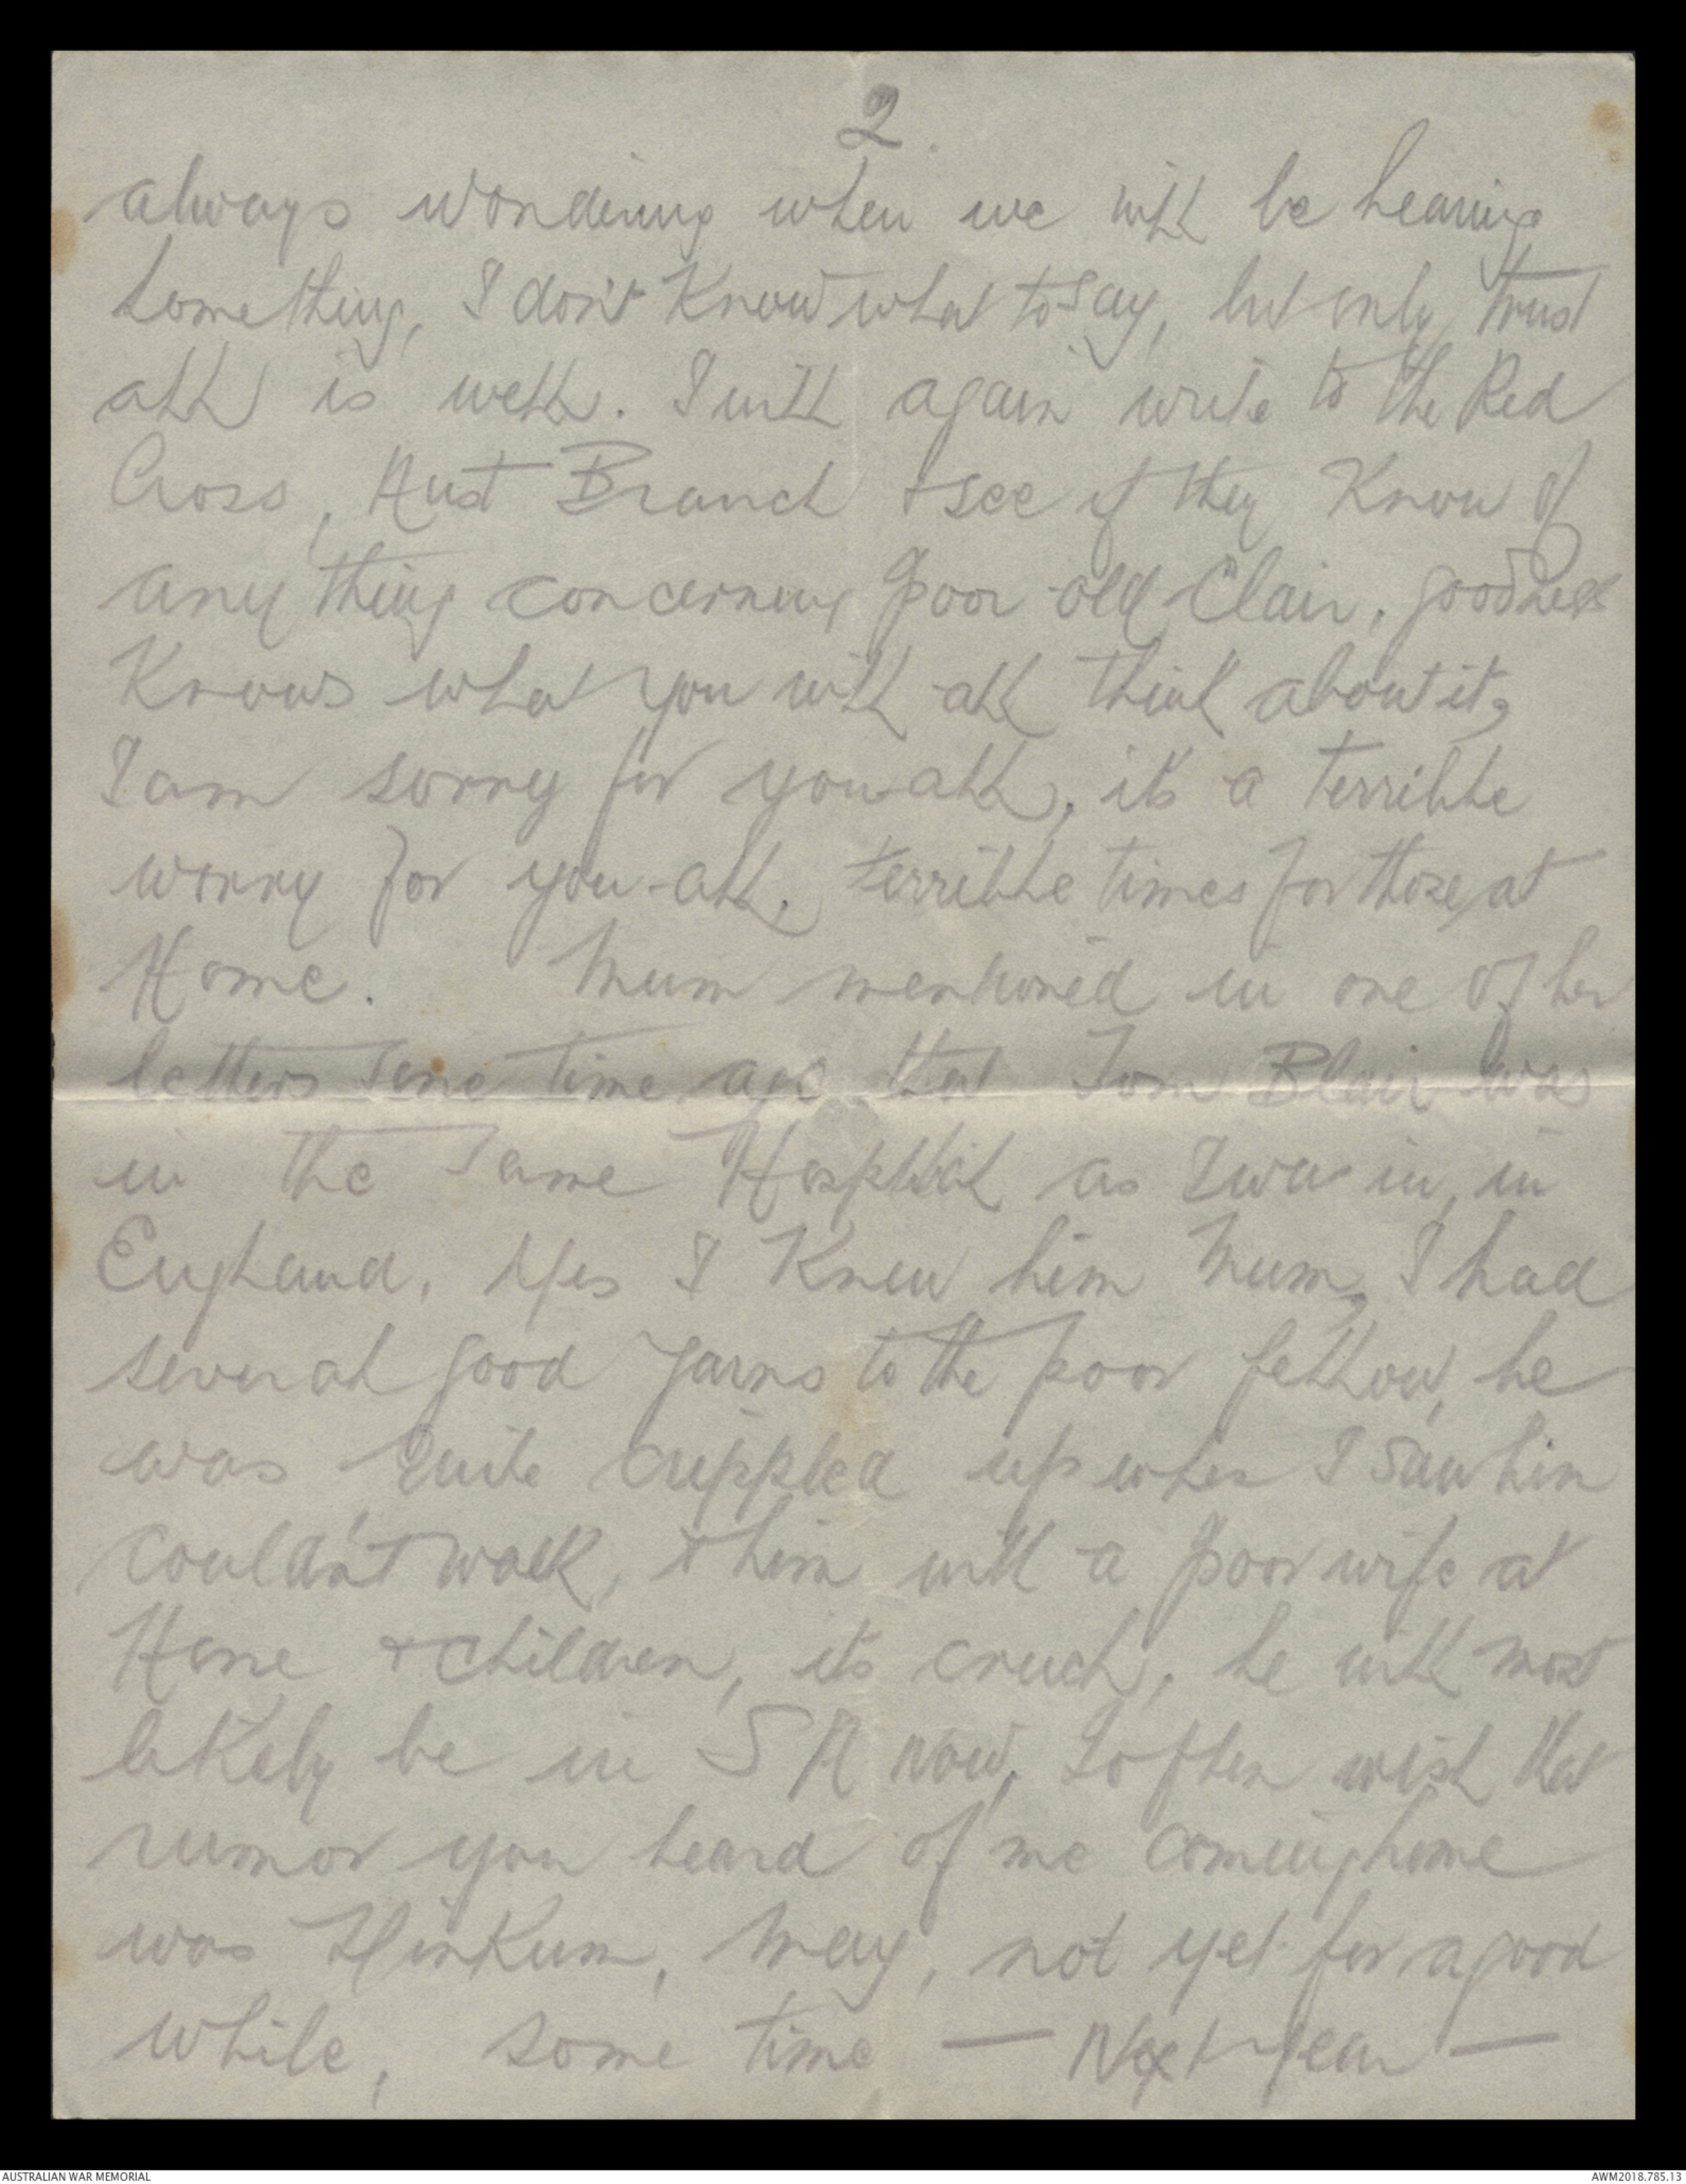 2.
always wondering when we will be hearing
something, I don't know what to say, but only trust
all is well. I will again write to the Red
Cross, Aust Branch & see if they know of
anything concerning poor old Clair, goodness
Knows what you will all think about it,
I am sorry for you all, it's a terrible
worry for you all, terrible times for those at
Home. Mum mentioned in one of her
letters some time ago that Tom Blair was
in the same Hospital as I was in, in
England, Yes I Knew him Mum, I had
several good yarns to the poor fellow, he
was quite crippled up when I saw him
couldn't walk, & him with a poor wife at
Home & children, its cruel, he will most
likely be in S A now, I often wish that
rumor you heard of me coming home
was Dinkum, May, not yet for a good
while, some time — Next year —
AUSTRALIAN WAR MEMORIAL
AWM2018.785.13